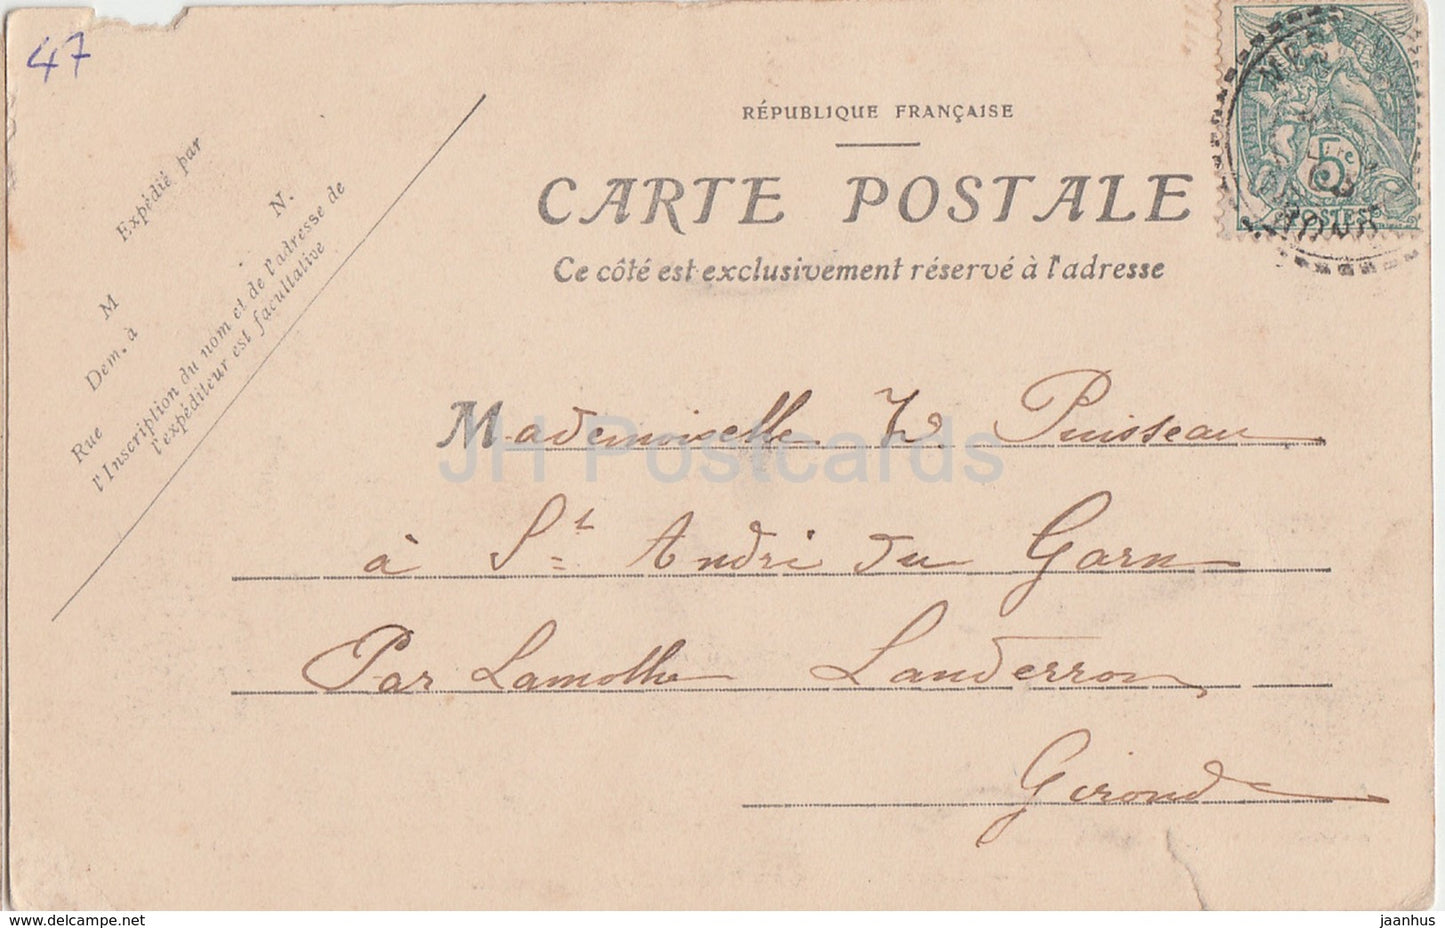 47
RÉPUBLIQUE FRANÇAISE
CARTE POSTALE
Ce côté est exclusivement réservé à l'adresse
5c
POSTES
Expédié par
M
N.
Dem. à
Rue
l'Inscription du nom et de l'adresse de
l'expéditeur est facultative
Mademoiselle W. Puisseau
à St André du Garn
Par Lamothe Landerron
Gironde
JH Postcards
www.delcampe.net
jaanhus